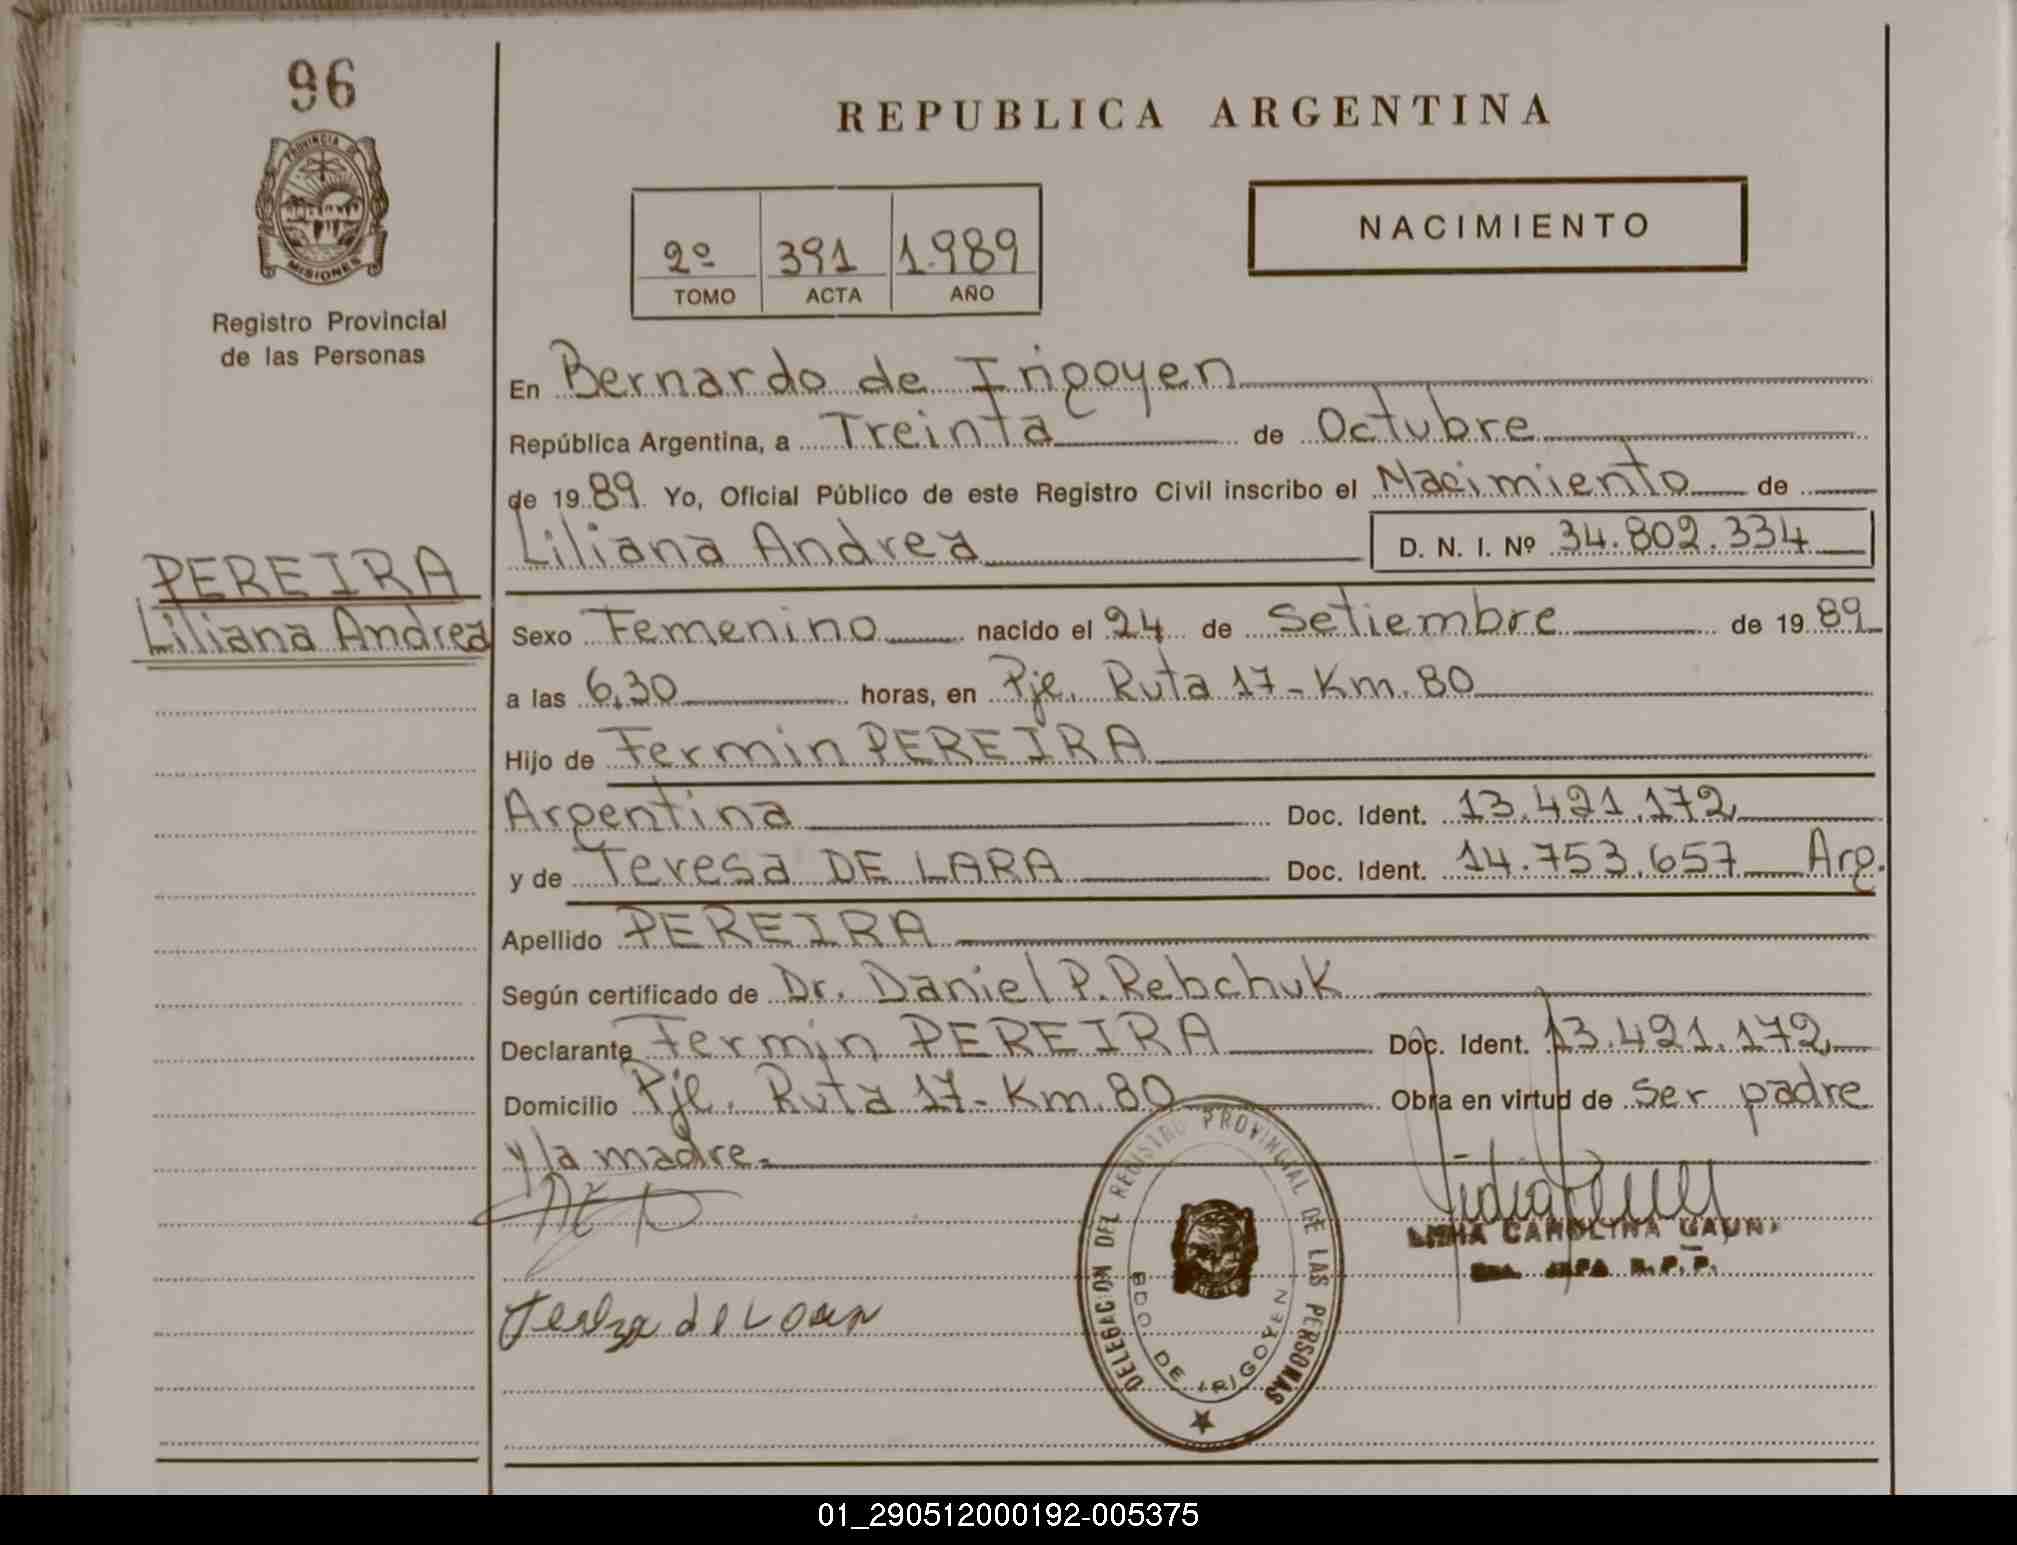 96
PROVINCIA DE
MISIONES
Registro Provincial
de las Personas
PEREIRA
Liliana Andrea
REPUBLICA ARGENTINA
2º 391 1.989
TOMO ACTA AÑO
NACIMIENTO
En Bernardo de Irigoyen
República Argentina, a Treinta de Octubre
de 19 89 Yo, Oficial Público de este Registro Civil inscribo el Nacimiento de
Liliana Andrea D. N. I. Nº 34.802.334
Sexo Femenino nacido el 24 de Setiembre de 19 89
a las 6,30 horas, en Pje. Ruta 17 - Km. 80
Hijo de Fermin PEREIRA
Argentina Doc. Ident. 13.421.172
y de Teresa DE LARA Doc. Ident. 14.753.657 Arg.
Apellido PEREIRA
Según certificado de Dr. Daniel P. Rebchuk
Declarante Fermin PEREIRA Doc. Ident. 13.421.172
Domicilio Pje. Ruta 17 - Km. 80 Obra en virtud de ser padre
y la madre.
DELEGACION DEL REGISTRO PROVINCIAL DE LAS PERSONAS
BDO DE IRIGOYEN
CAROLINA
R. P. P.
01_290512000192-005375